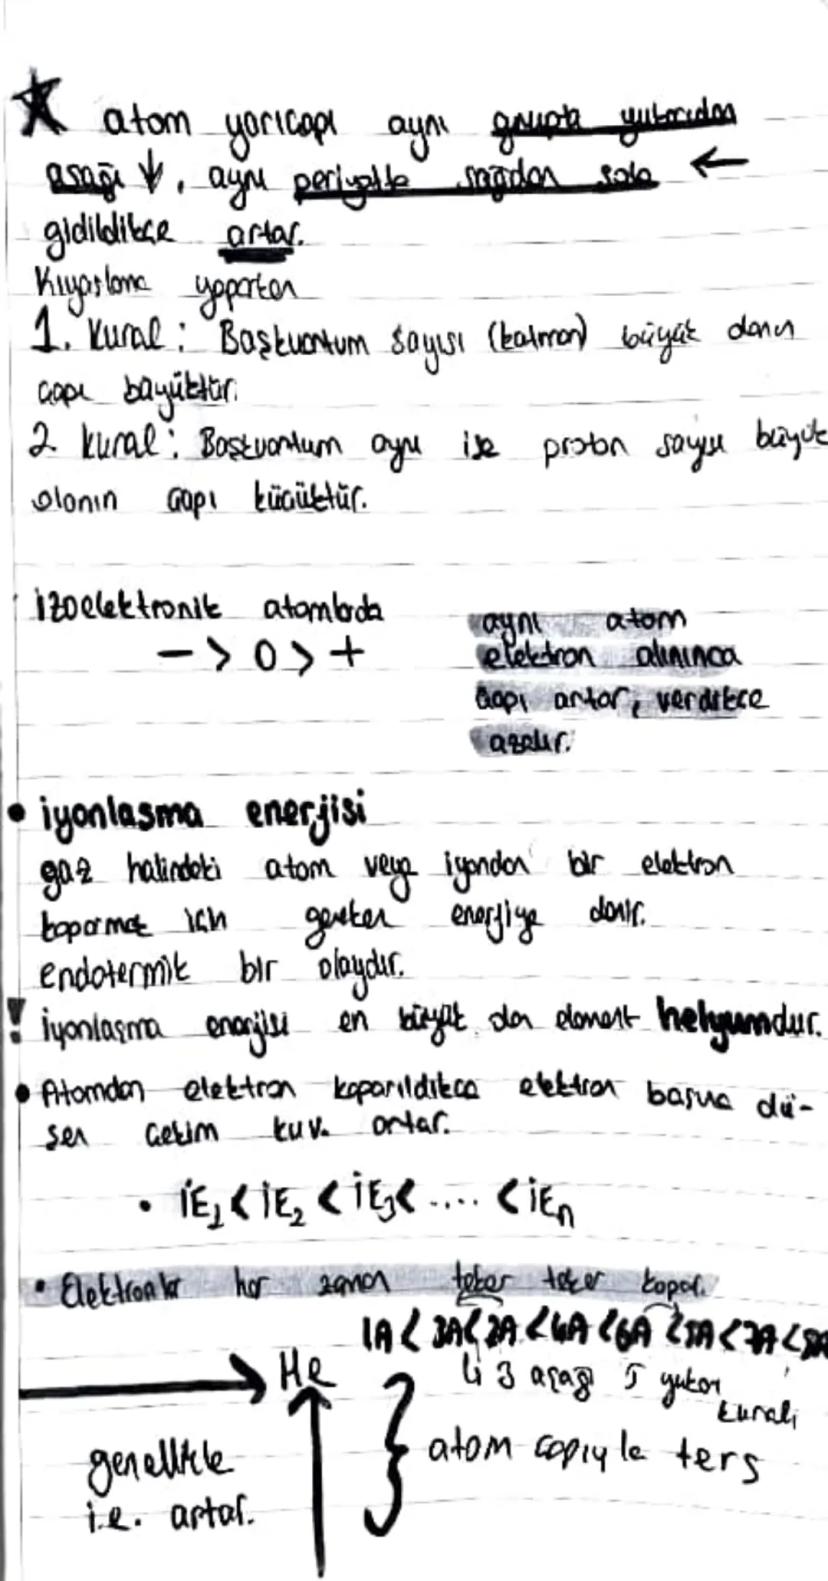 ★ atom yarıcapı aynı grupta yukarıdan
asağı ↓, aynı periyotta sağdan sola ←
gidildikce artar.
Kıyaslama yaparken
1. Kural: Baskuantum sayısı (katman) büyük olanın
capı büyüktür.
2 kural: Baskuantum aynı ise proton sayısı büyük
olanın capı kücüktür.
izoelektronik atomlarda
- > 0 > +
aynı atom
elektron alınınca
capı artar, verdikce
azalır.
• iyonlasma enerjisi
gaz halindeki atom veya iyondan bir elektron
koparmak icin gereken enerjiye denir.
endotermik bir olaydır.
! iyonlasma enerjisi en büyük olan element helyumdur.
• Atomdan elektron koparıldıkca elektron basına dü-
sen cekim kuv. artar.
• İE₁ < İE₂ < İE₃ < .... < İEₙ
• Elektronlar her zaman teker teker kopar.
1A < 3A < 2A < 4A < 6A < 5A < 7A < 8A
3 aşağı 5 yukarı
kuralı
He
genellikle
i.e. artar.
atom capıyla ters